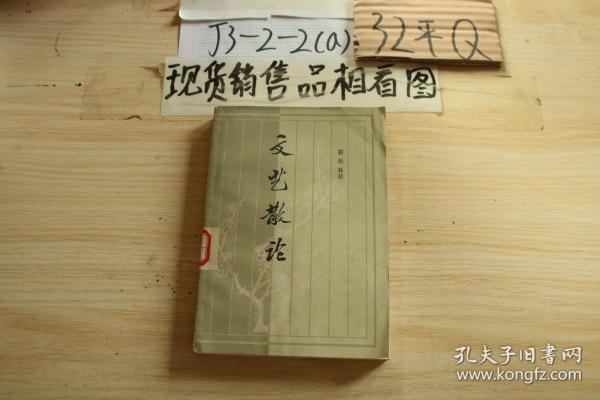 J3-2-2(a)
32平Q
现货销售品相看图
文艺散论
林
著
孔夫子旧书网
www.kongfz.com